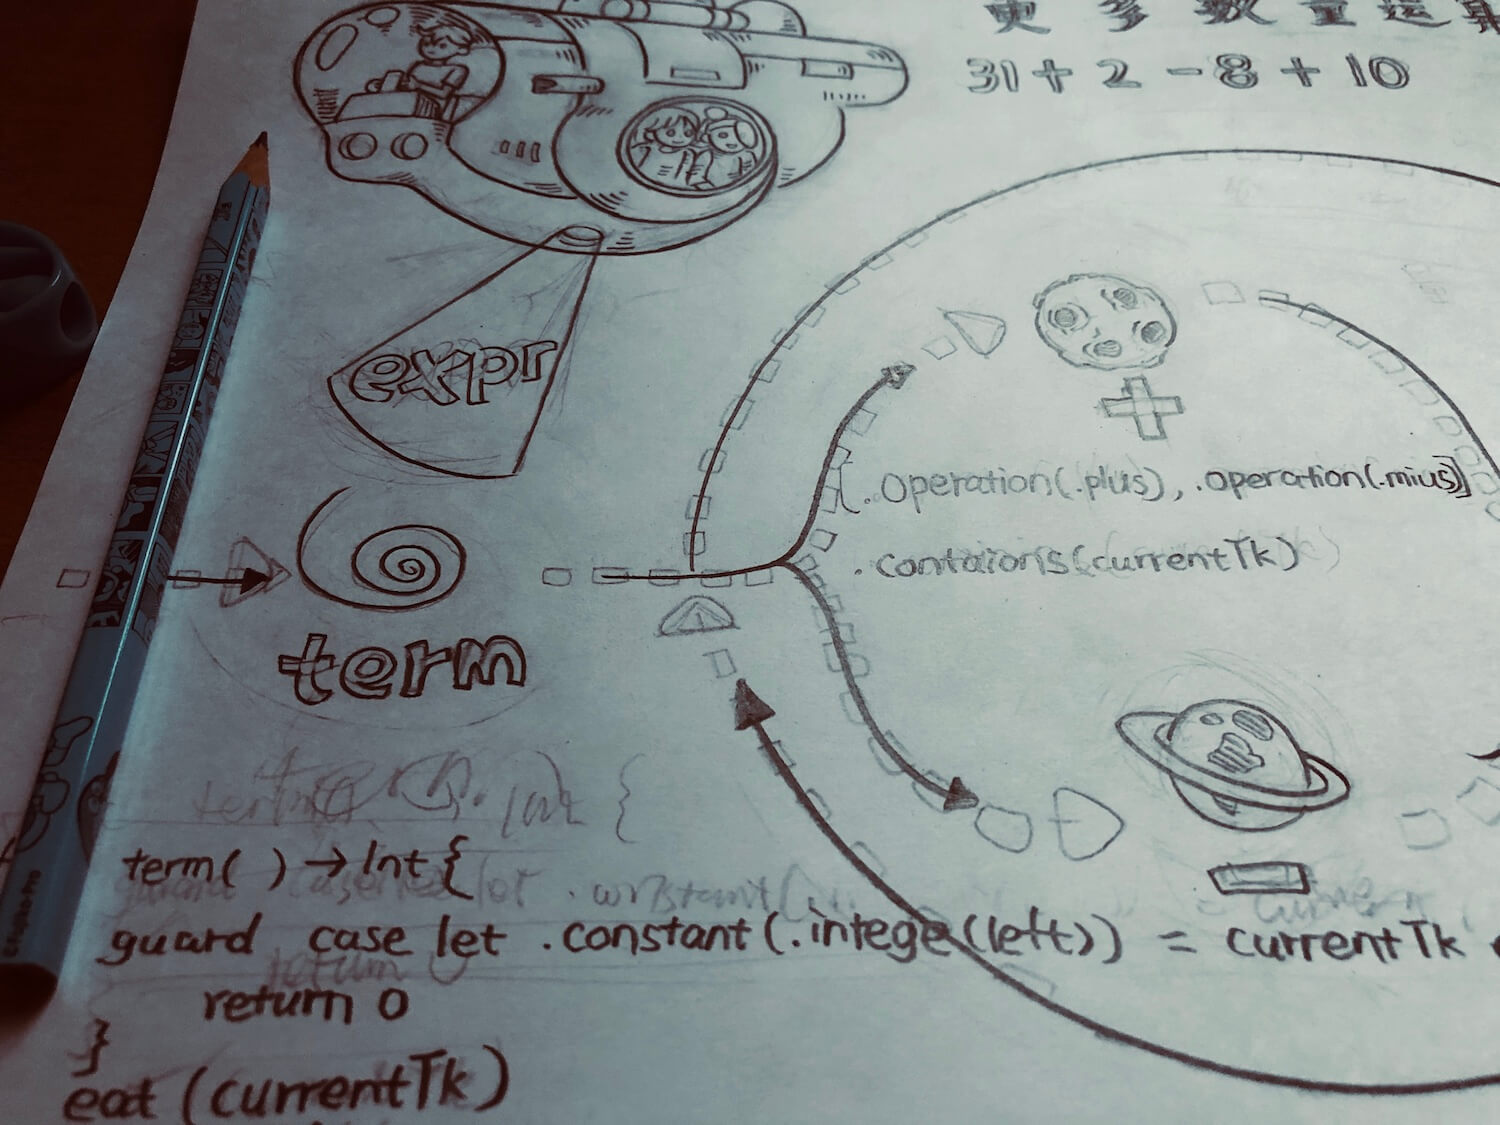 更多数量运算
31 + 2 - 8 + 10
expr
[.operation(.plus), .operation(.mius)]
.contaions(currentTk)
term
term( ) → Int {
guard case let .constant(.intege(left)) = currentTk
return 0
}
eat (currentTk)